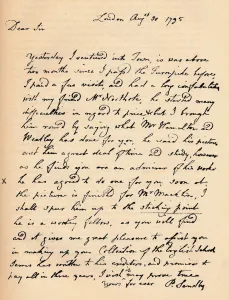 London Augst 30 1795
Dear Sir
Yesterday I ventured into Town, is was above
two months since I past the Turnpike before
I paid a few visits, and had a long confabulation
with my friend Mr Northcote, he started many
difficulties in regard to price & but I brought
him round by saying what Mr Hamilton and
Westley has done for you, he said his picture
cost him a great deal of time and study, however
as he finds you are an admirer of his works
x he has agreed to do one for you soon as
the picture is finished for Mr Macklin, I
shall spur him up to the sticking point
he is a worthy fellow, as you will find
and it gives me great pleasure to assist you
in making up your Collection of the English School
has written to his and promises to
pay all in three years, I wish may prove true
yours for ever P. Sandby